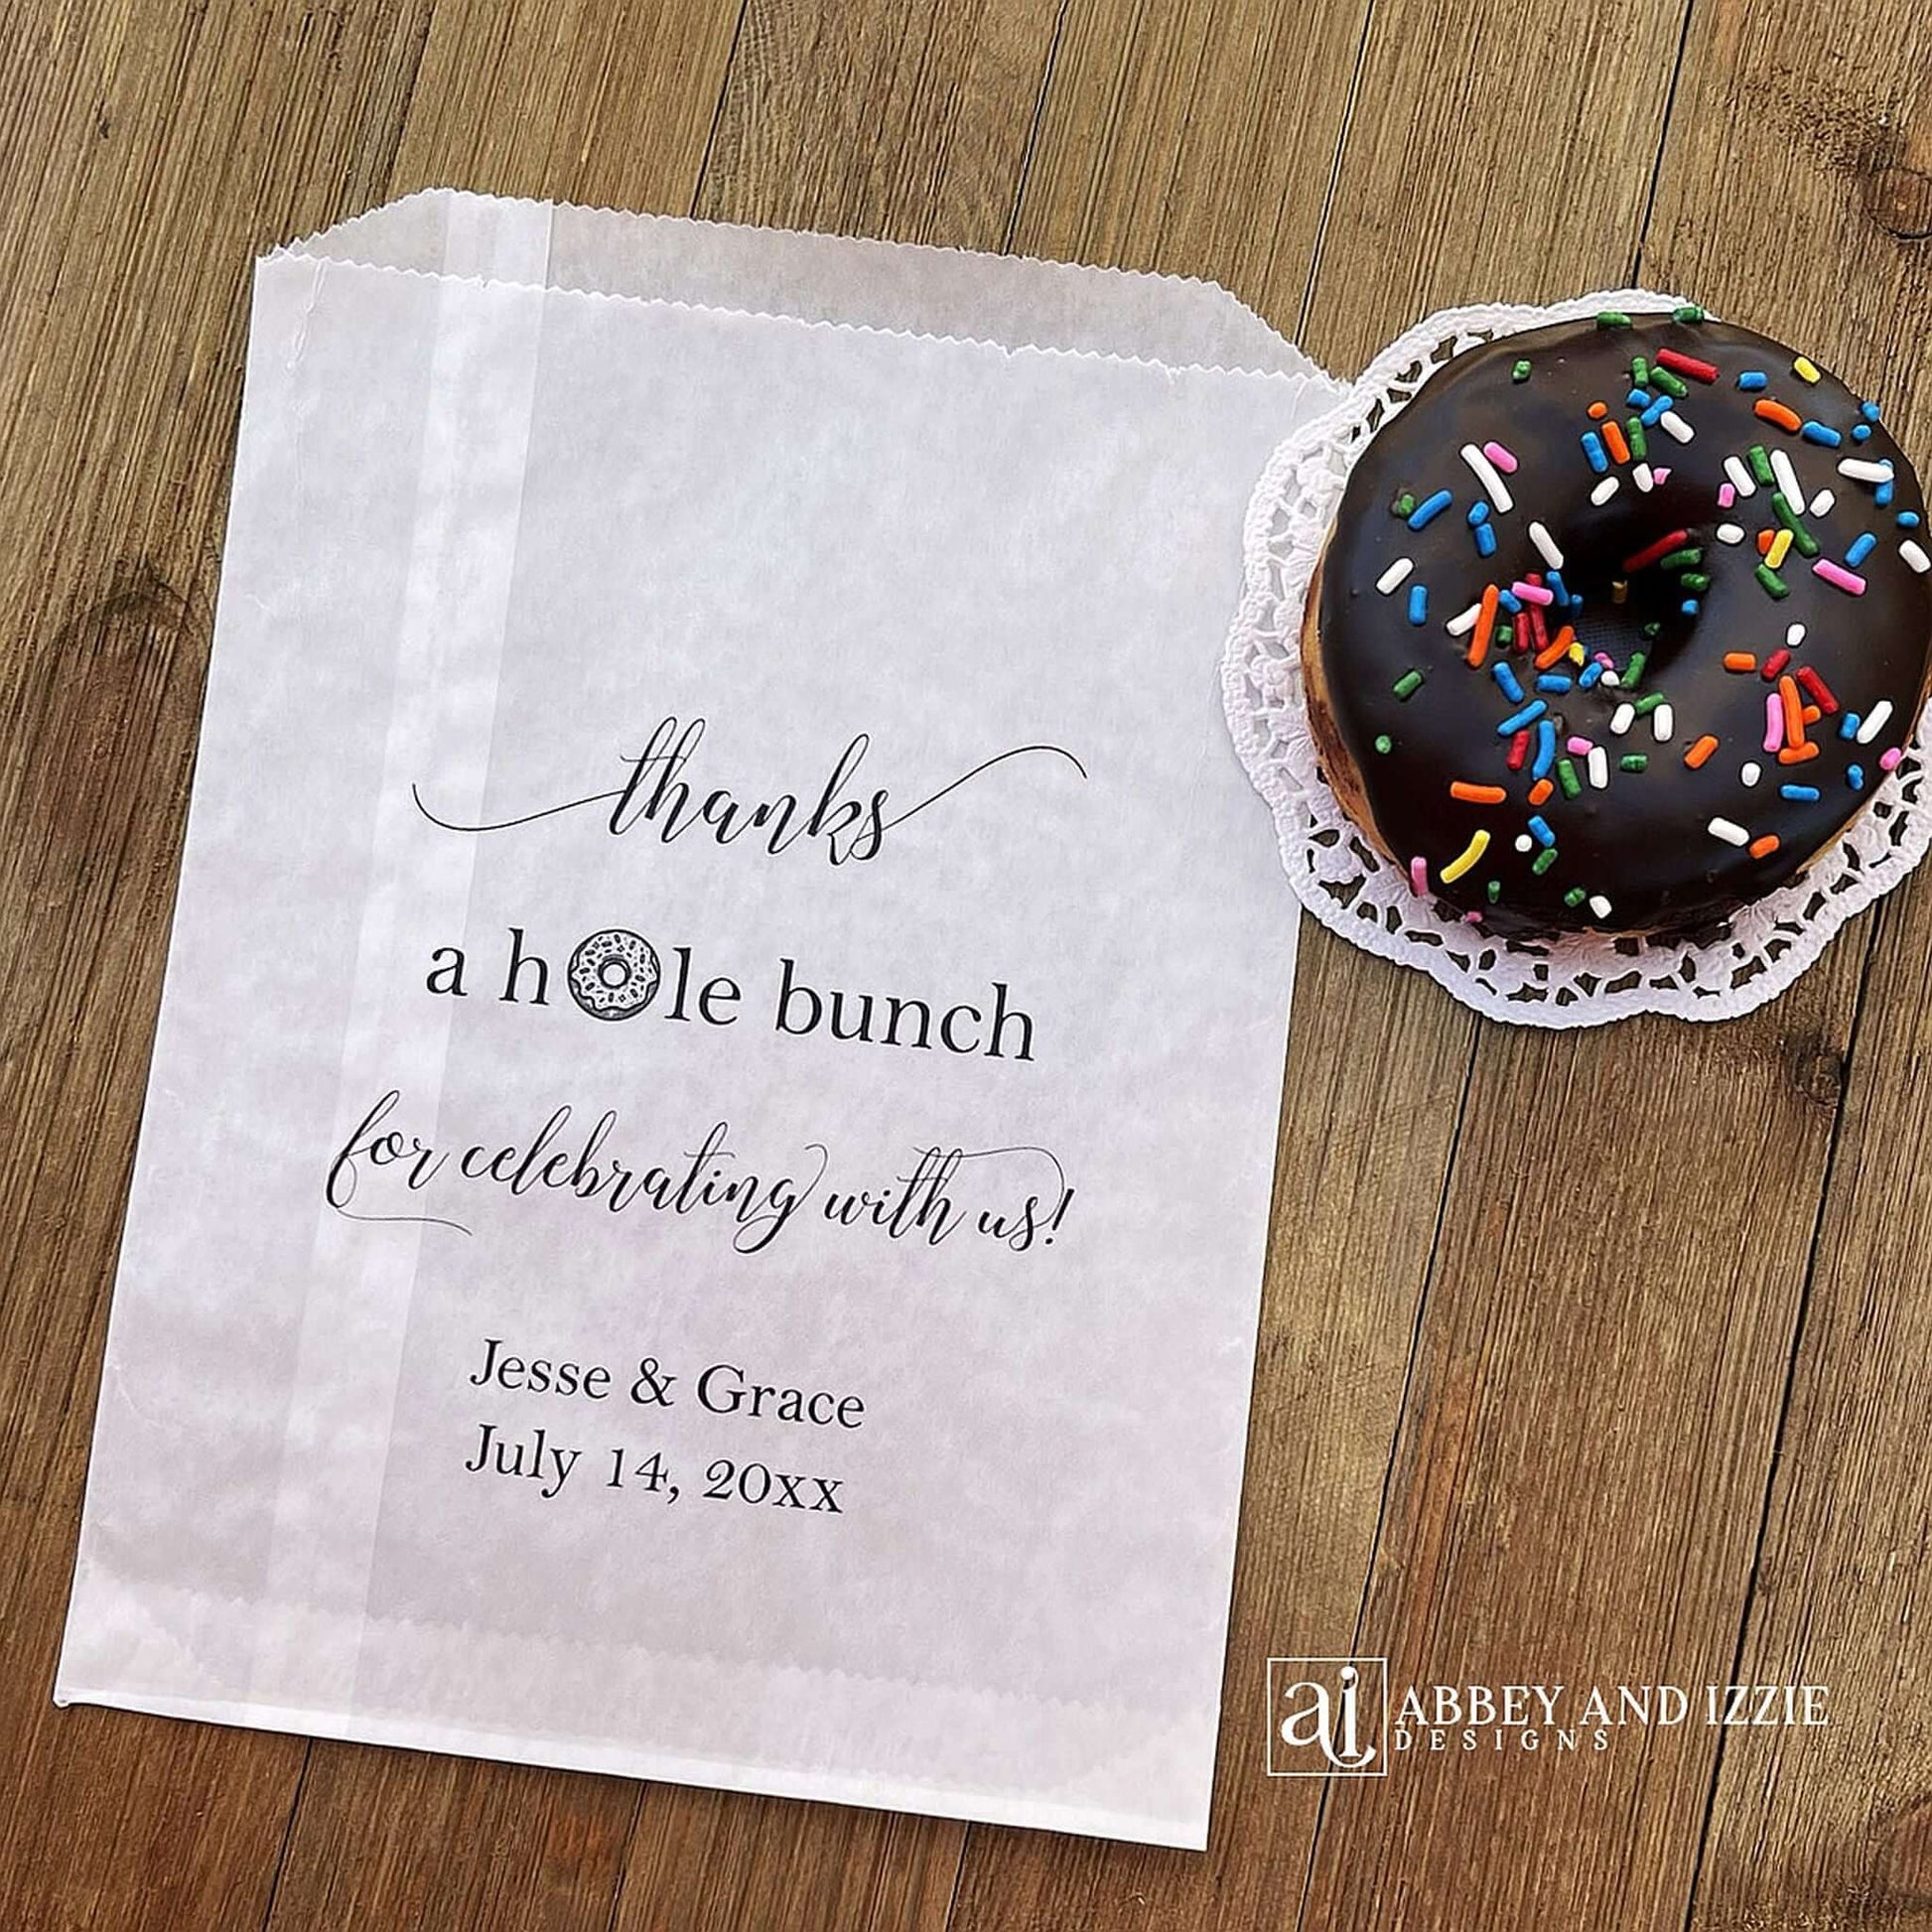 thanks
a hole bunch
for celebrating with us!
Jesse & Grace
July 14, 20xx
aj ABBEY AND IZZIE
DESIGNS